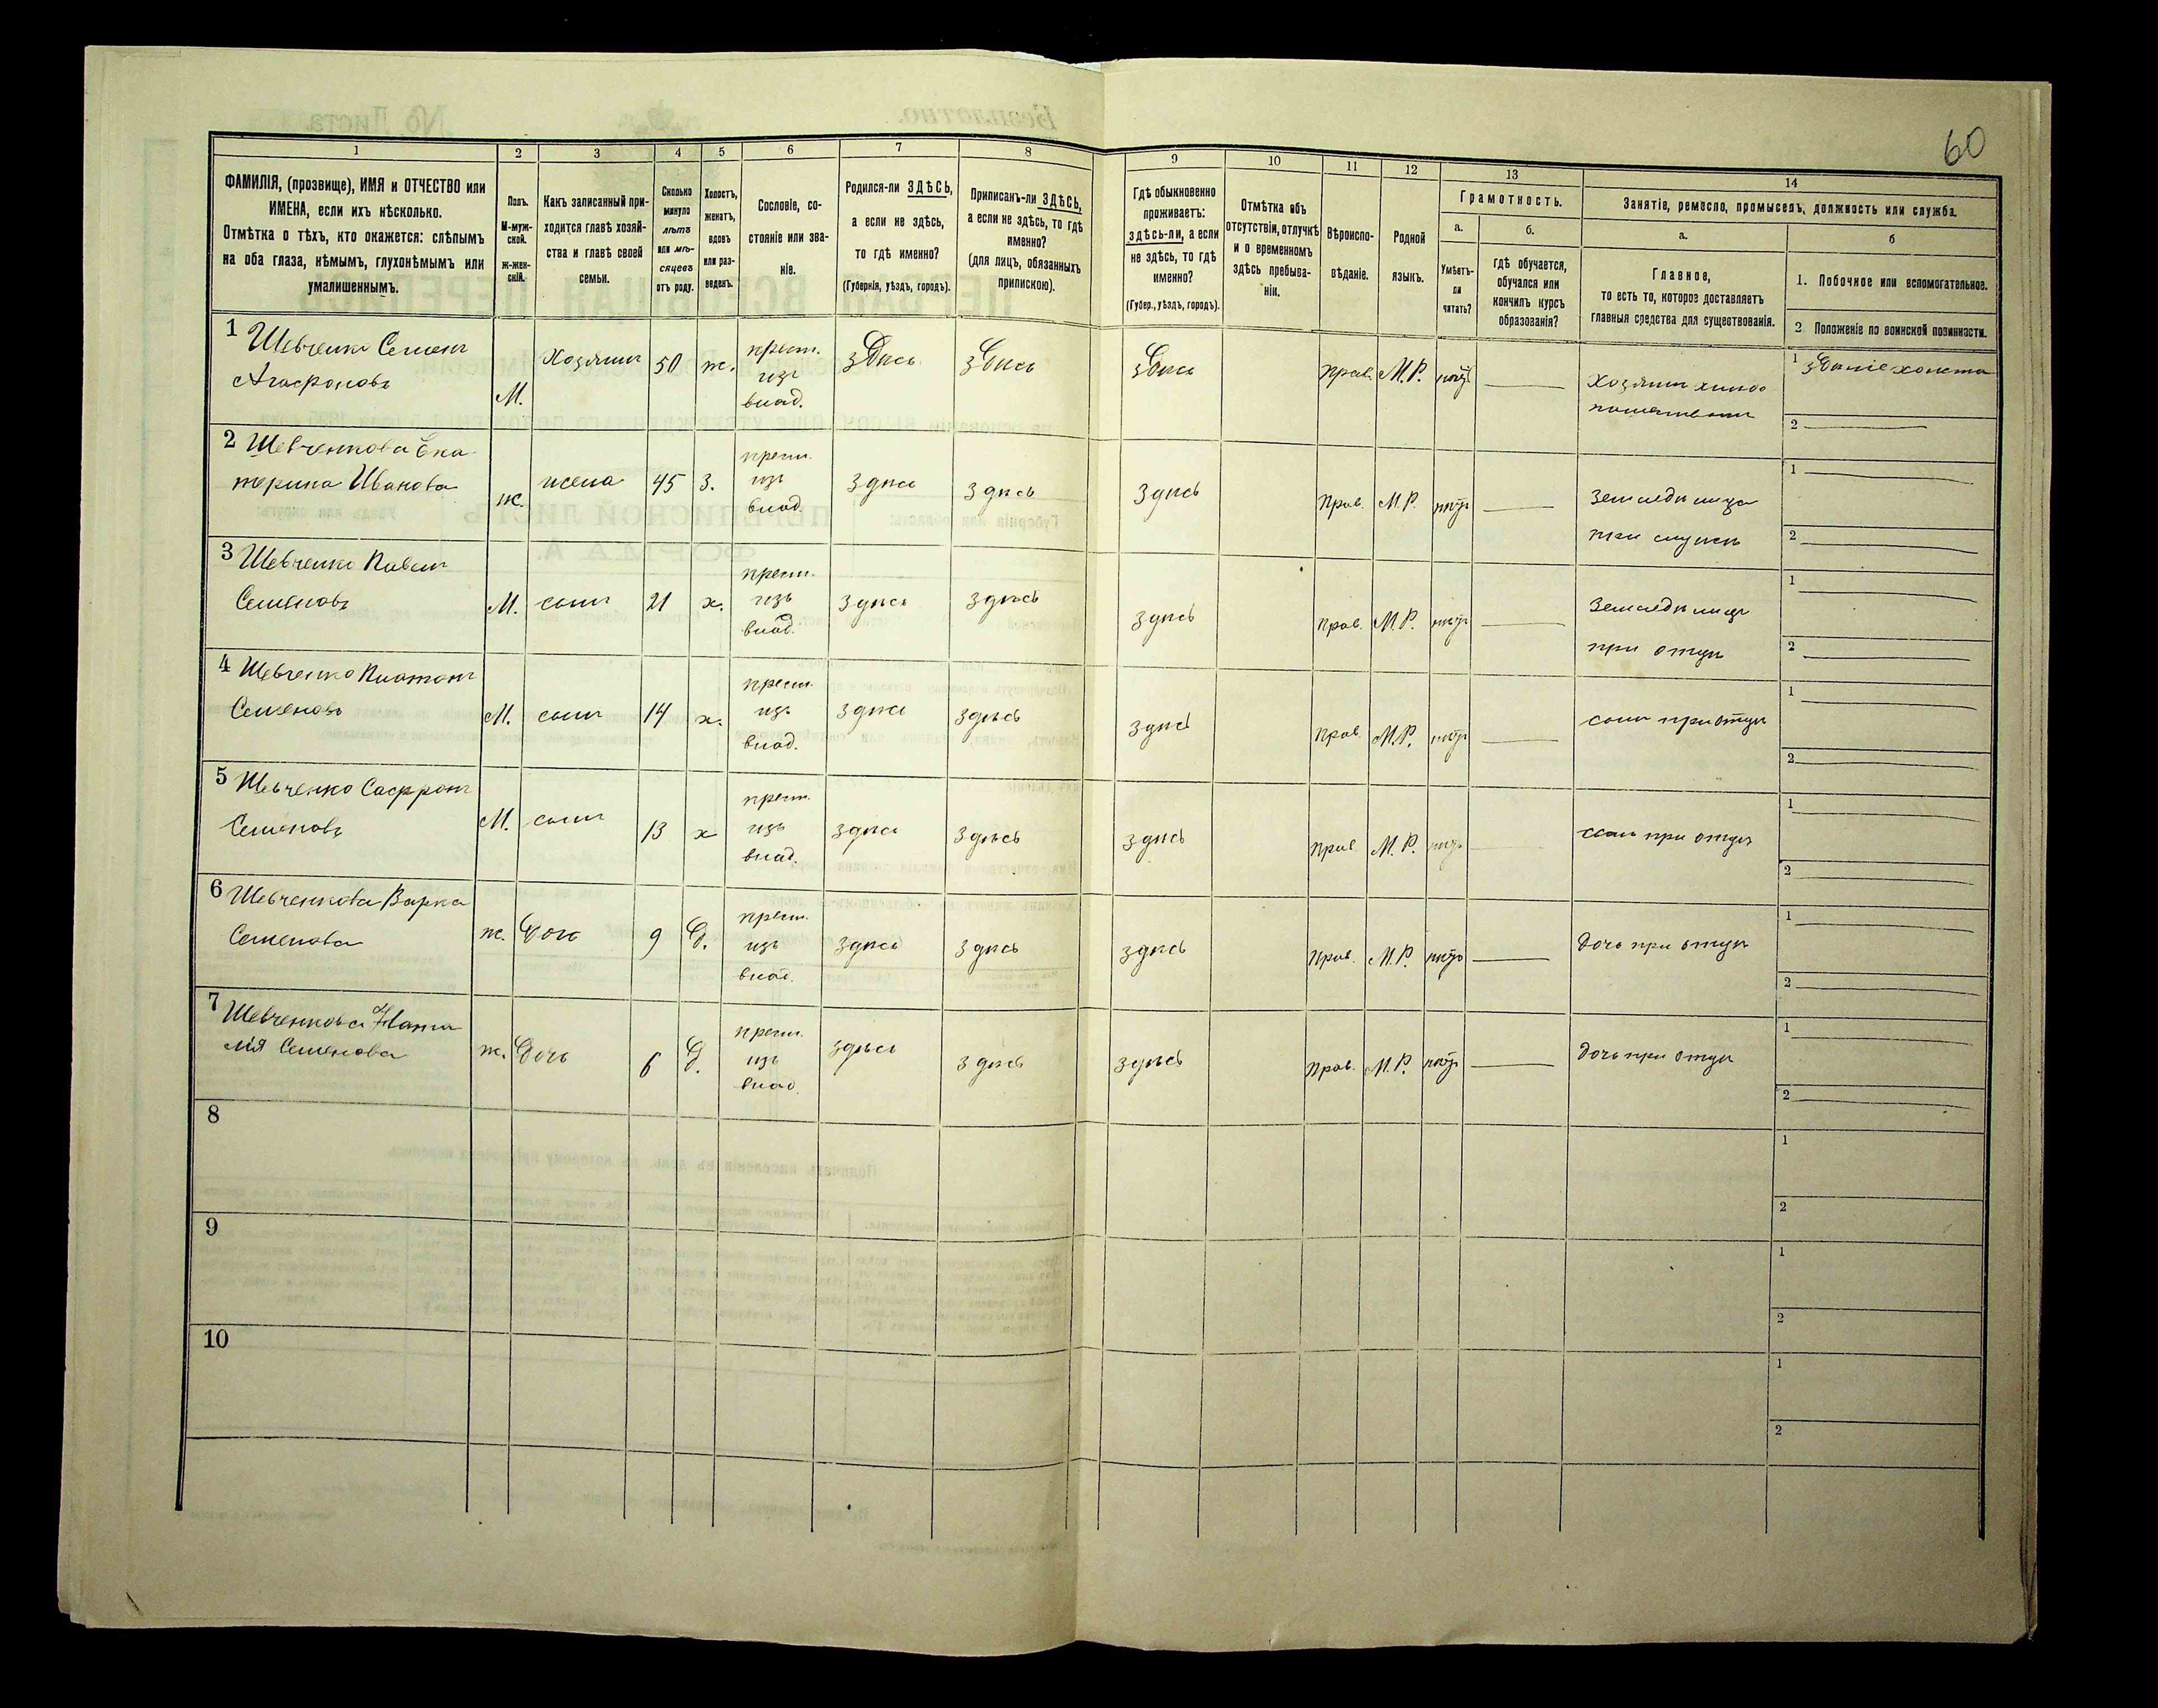 60
1 2 3 4 5 6 7 8 9 10 11 12 13 14
ФАМИЛІЯ, (прозвище), ИМЯ и ОТЧЕСТВО или
ИМЕНА, если ихъ нѣсколько.
Отмѣтка о тѣхъ, кто окажется: слѣпымъ
на оба глаза, нѣмымъ, глухонѣмымъ или
умалишеннымъ.
Полъ.
М-муж-
ской.
ж-жен-
скій.
Какъ записанный при-
ходится главѣ хозяй-
ства и главѣ своей
семьи.
Сколько
минуло
лѣтъ
или мѣ-
сяцевъ
отъ роду.
Холостъ,
женатъ,
вдовъ
или раз-
веденъ.
Сословіе, со-
стояніе или зва-
ніе.
Родился-ли ЗДѢСЬ,
а если не здѣсь,
то гдѣ именно?
(Губернія, уѣздъ, городъ).
Приписанъ-ли ЗДѢСЬ,
а если не здѣсь, то гдѣ
именно?
(для лицъ, обязанныхъ
припискою).
Гдѣ обыкновенно
проживаетъ:
здѣсь-ли, а если
не здѣсь, то гдѣ
именно?
(Губер., уѣздъ, городъ).
Отмѣтка объ
отсутствіи, отлучкѣ
и о временномъ
здѣсь пребыва-
ніи.
Вѣроиспо-
вѣданіе.
Родной
языкъ.
Грамотность.
а.
Умѣетъ-
ли
читать?
б.
гдѣ обучается,
обучался или
кончилъ курсъ
образованія?
Занятіе, ремесло, промыселъ, должность или служба.
а.
Главное,
то есть то, которое доставляетъ
главныя средства для существованія.
б
1. Побочное или вспомогательное.
2 Положеніе по воинской повинности.
1 Шевченко Семенъ
Агафоновъ
М. Хозяинъ 50 ж. крест. изъ влад. здѣсь здѣсь здѣсь Прав. М.Р. нѣтъ
Хозяинъ
1
2
2 Шевченкова Ека-
терина Иванова
ж. жена 45 з. крест. изъ влад. здѣсь здѣсь здѣсь Прав. М.Р. нѣтъ
1
2
3 Шевченко Павелъ
Семеновъ
М. сынъ 21 х. крест. изъ влад. здѣсь здѣсь здѣсь Прав. М.Р. нѣтъ
при отцѣ
1
2
4 Шевченко Платонъ
Семеновъ
М. сынъ 14 х. крест. изъ влад. здѣсь здѣсь здѣсь Прав. М.Р. нѣтъ сынъ при отцѣ
1
2
5 Шевченко Сафронъ
Семеновъ
М. сынъ 13 х крест. изъ влад. здѣсь здѣсь здѣсь Прав М.Р. нѣтъ сынъ при отцѣ
1
2
6 Шевченкова Варка
Семенова
ж. дочь 9 д. крест. изъ влад. здѣсь здѣсь здѣсь Прав. М.Р. нѣтъ дочь при отцѣ
1
2
7 Шевченкова Ната
лія Семенова
ж. дочь 6 д. крест. изъ влад. здѣсь здѣсь здѣсь Прав. М.Р. нѣтъ дочь при отцѣ
1
2
8
1
2
9
1
2
10
1
2